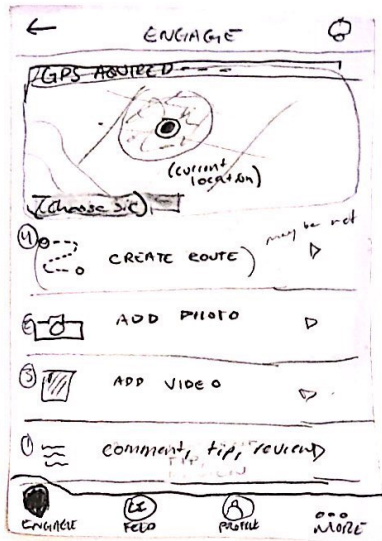 ← ENGAGE
GPS AQUIRED - - -
(current
location)
(Choose Sic)
may be not
4 CREATE ROUTE)
2 ADD PHOTO
3 ADD VIDEO
1 comment, tip, review
ENGAGE FEED PROFILE MORE